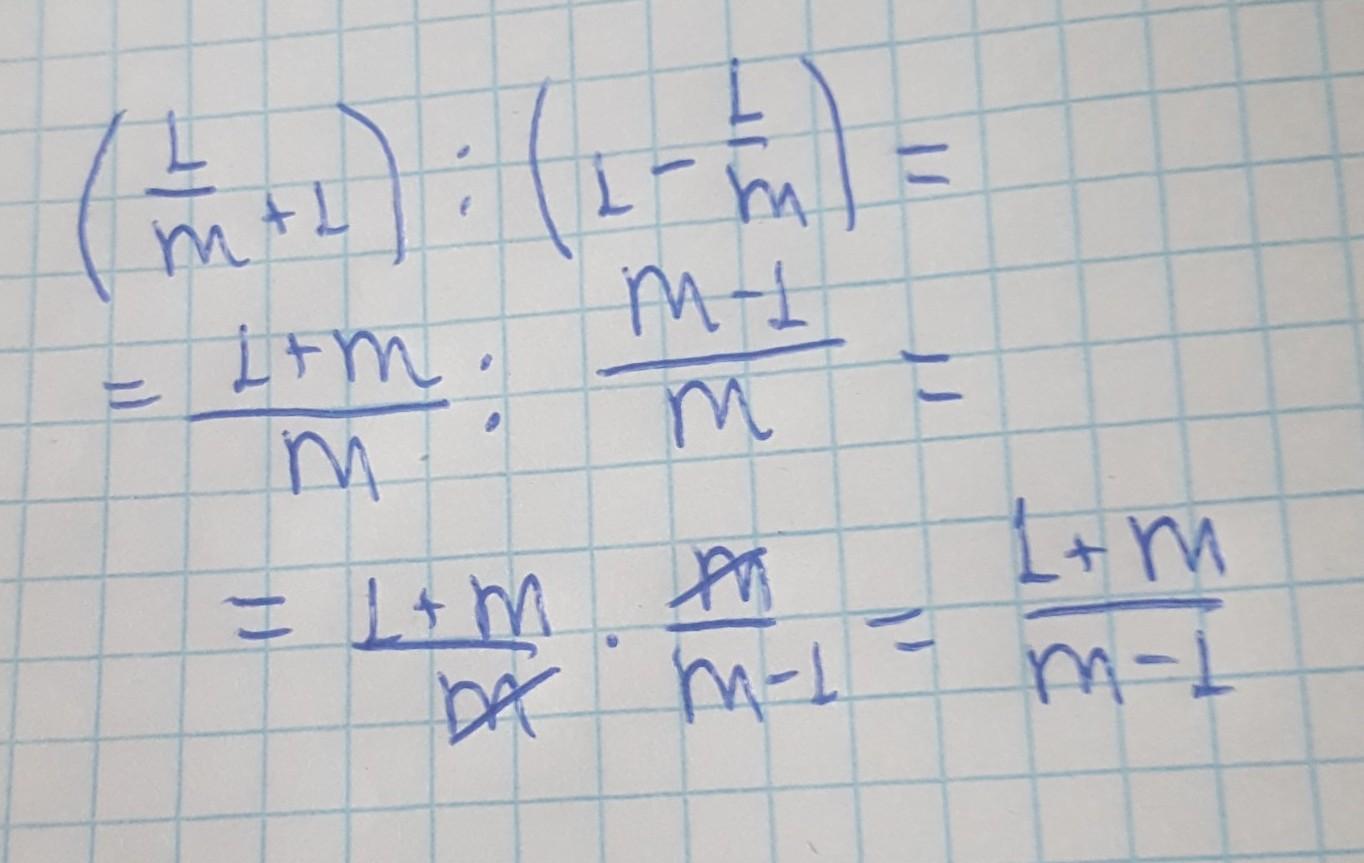 (1/m + 1) : (1 - 1/m) =
= (1+m)/m : (m-1)/m =
= (1+m)/m · m/(m-1) = (1+m)/(m-1)